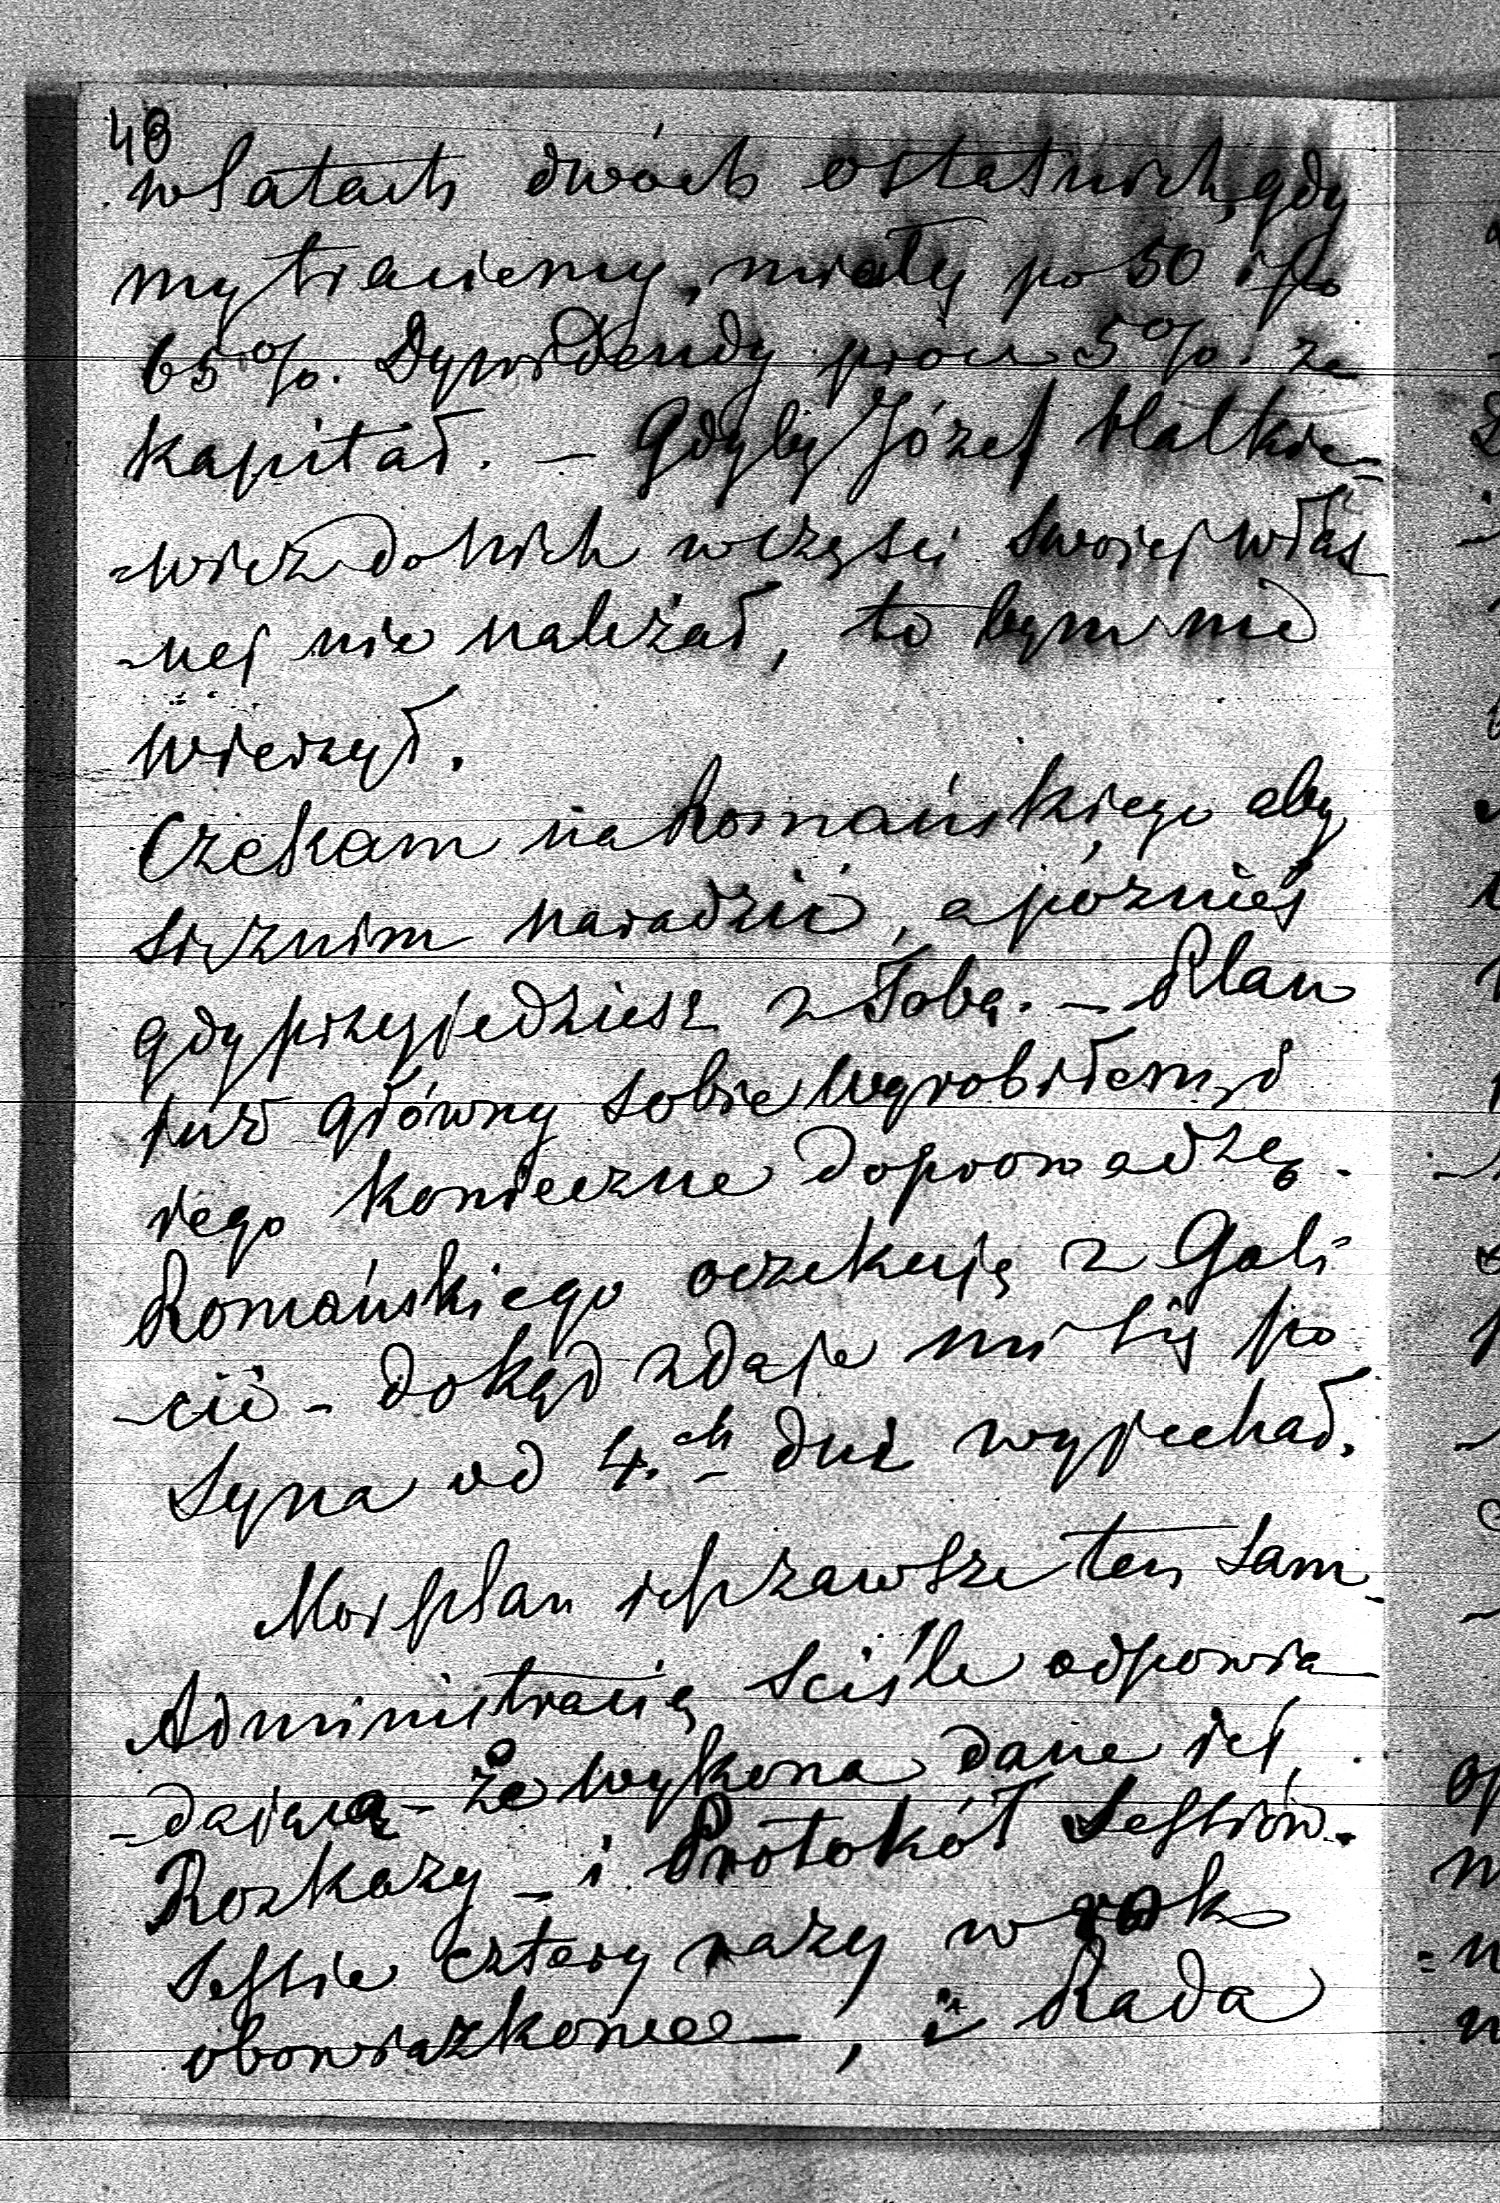 48
w latach dwóch ostatnich, gdy
my traciemy, miały po 50 i po
65%. Dywidendy prócz 5%. za
kapitał. — Gdyby Józef
-wicz do nich w części swojej włas
-nej nie należał, to bym nie
wierzył.
Czekam na Romańskiego aby
się z nim naradzić, a późniei
gdy przyjedziesz z Tobą. — Plan
już główny sobie wyrobiłem, i
iego konieczne doprowadzę.
Romańskiego oczekuję z Gali
-cii - dokąd zdaje mi się po
Syna od 4.ch dni wyjechał.
Moj plan jest zawsze ten sam
Administracią sciśle odpowia
-dającą - że wykona dane jej
Rozkazy - i Protokół Sessiów.
Sessie cztery razy w rok
obowiązkowe —, i Rada